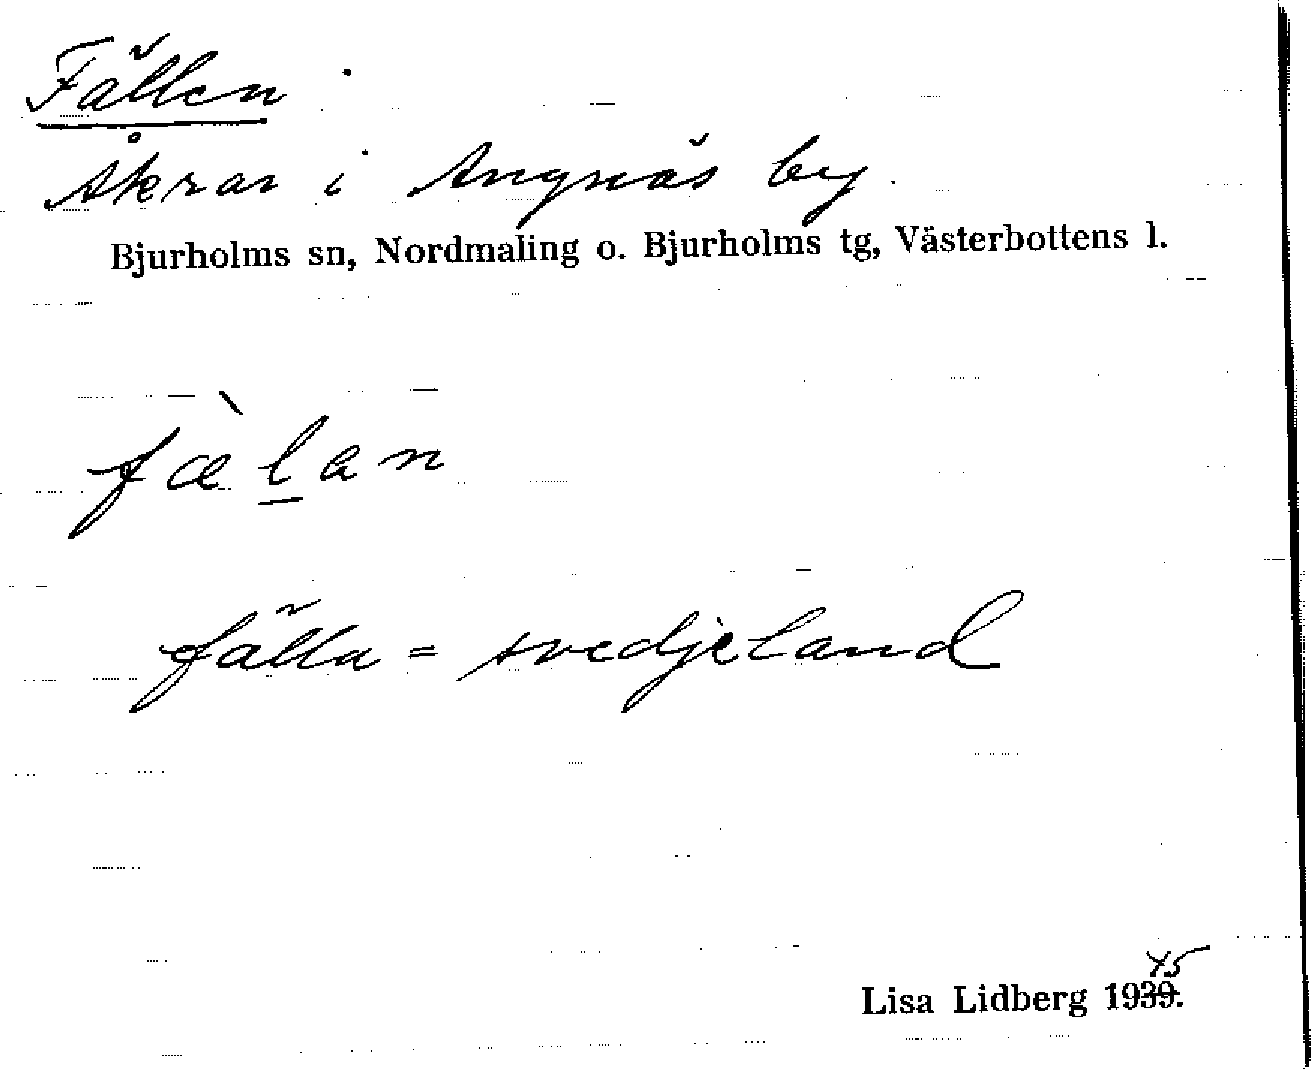 Fällen
Åkrar i Angnäs by
Bjurholms sn, Nordmaling o. Bjurholms tg, Västerbottens l.
fæ̀l̲an
fälla = svedjeland
45
Lisa Lidberg 1939.